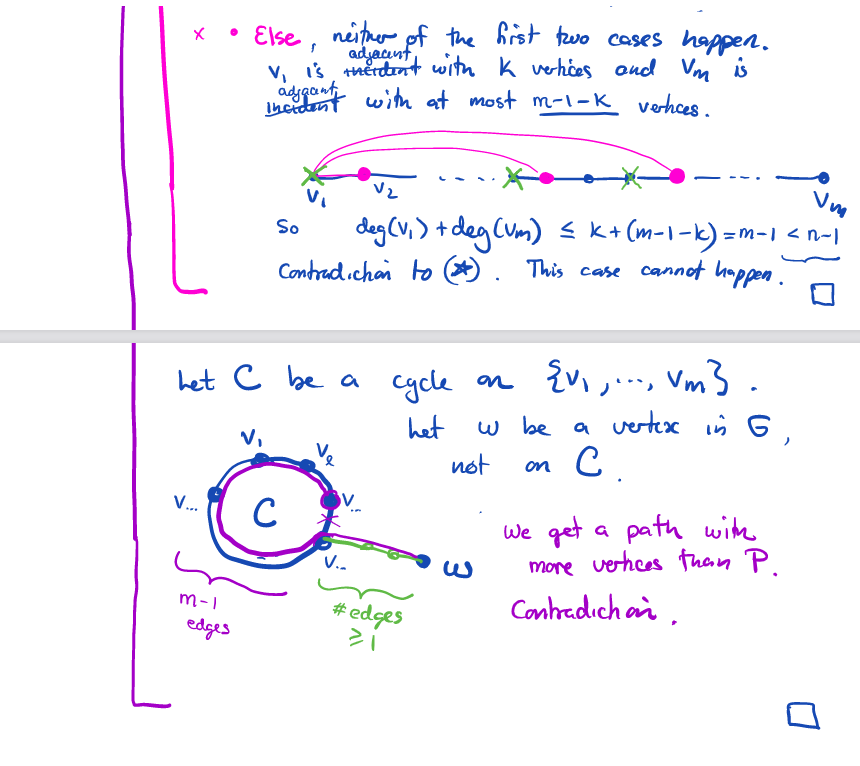 x • Else, neither of the first two cases happen.
adjacent
v₁ is incident with k vertices and vₘ is
adjacent
incident with at most m-1-k vertices.
v₁ v₂ ..... --- ... vₘ
So deg(v₁) + deg(vₘ) ≤ k + (m-1-k) = m-1 < n-1
Contradiction to (*). This case cannot happen.
Let C be a cycle on {v₁, ..., vₘ}.
Let w be a vertex in G,
not on C.
v₁
vₑ
v...
C
v...
v...
w
we get a path with
more vertices than P.
Contradiction.
m-1
edges
#edges
≥ 1